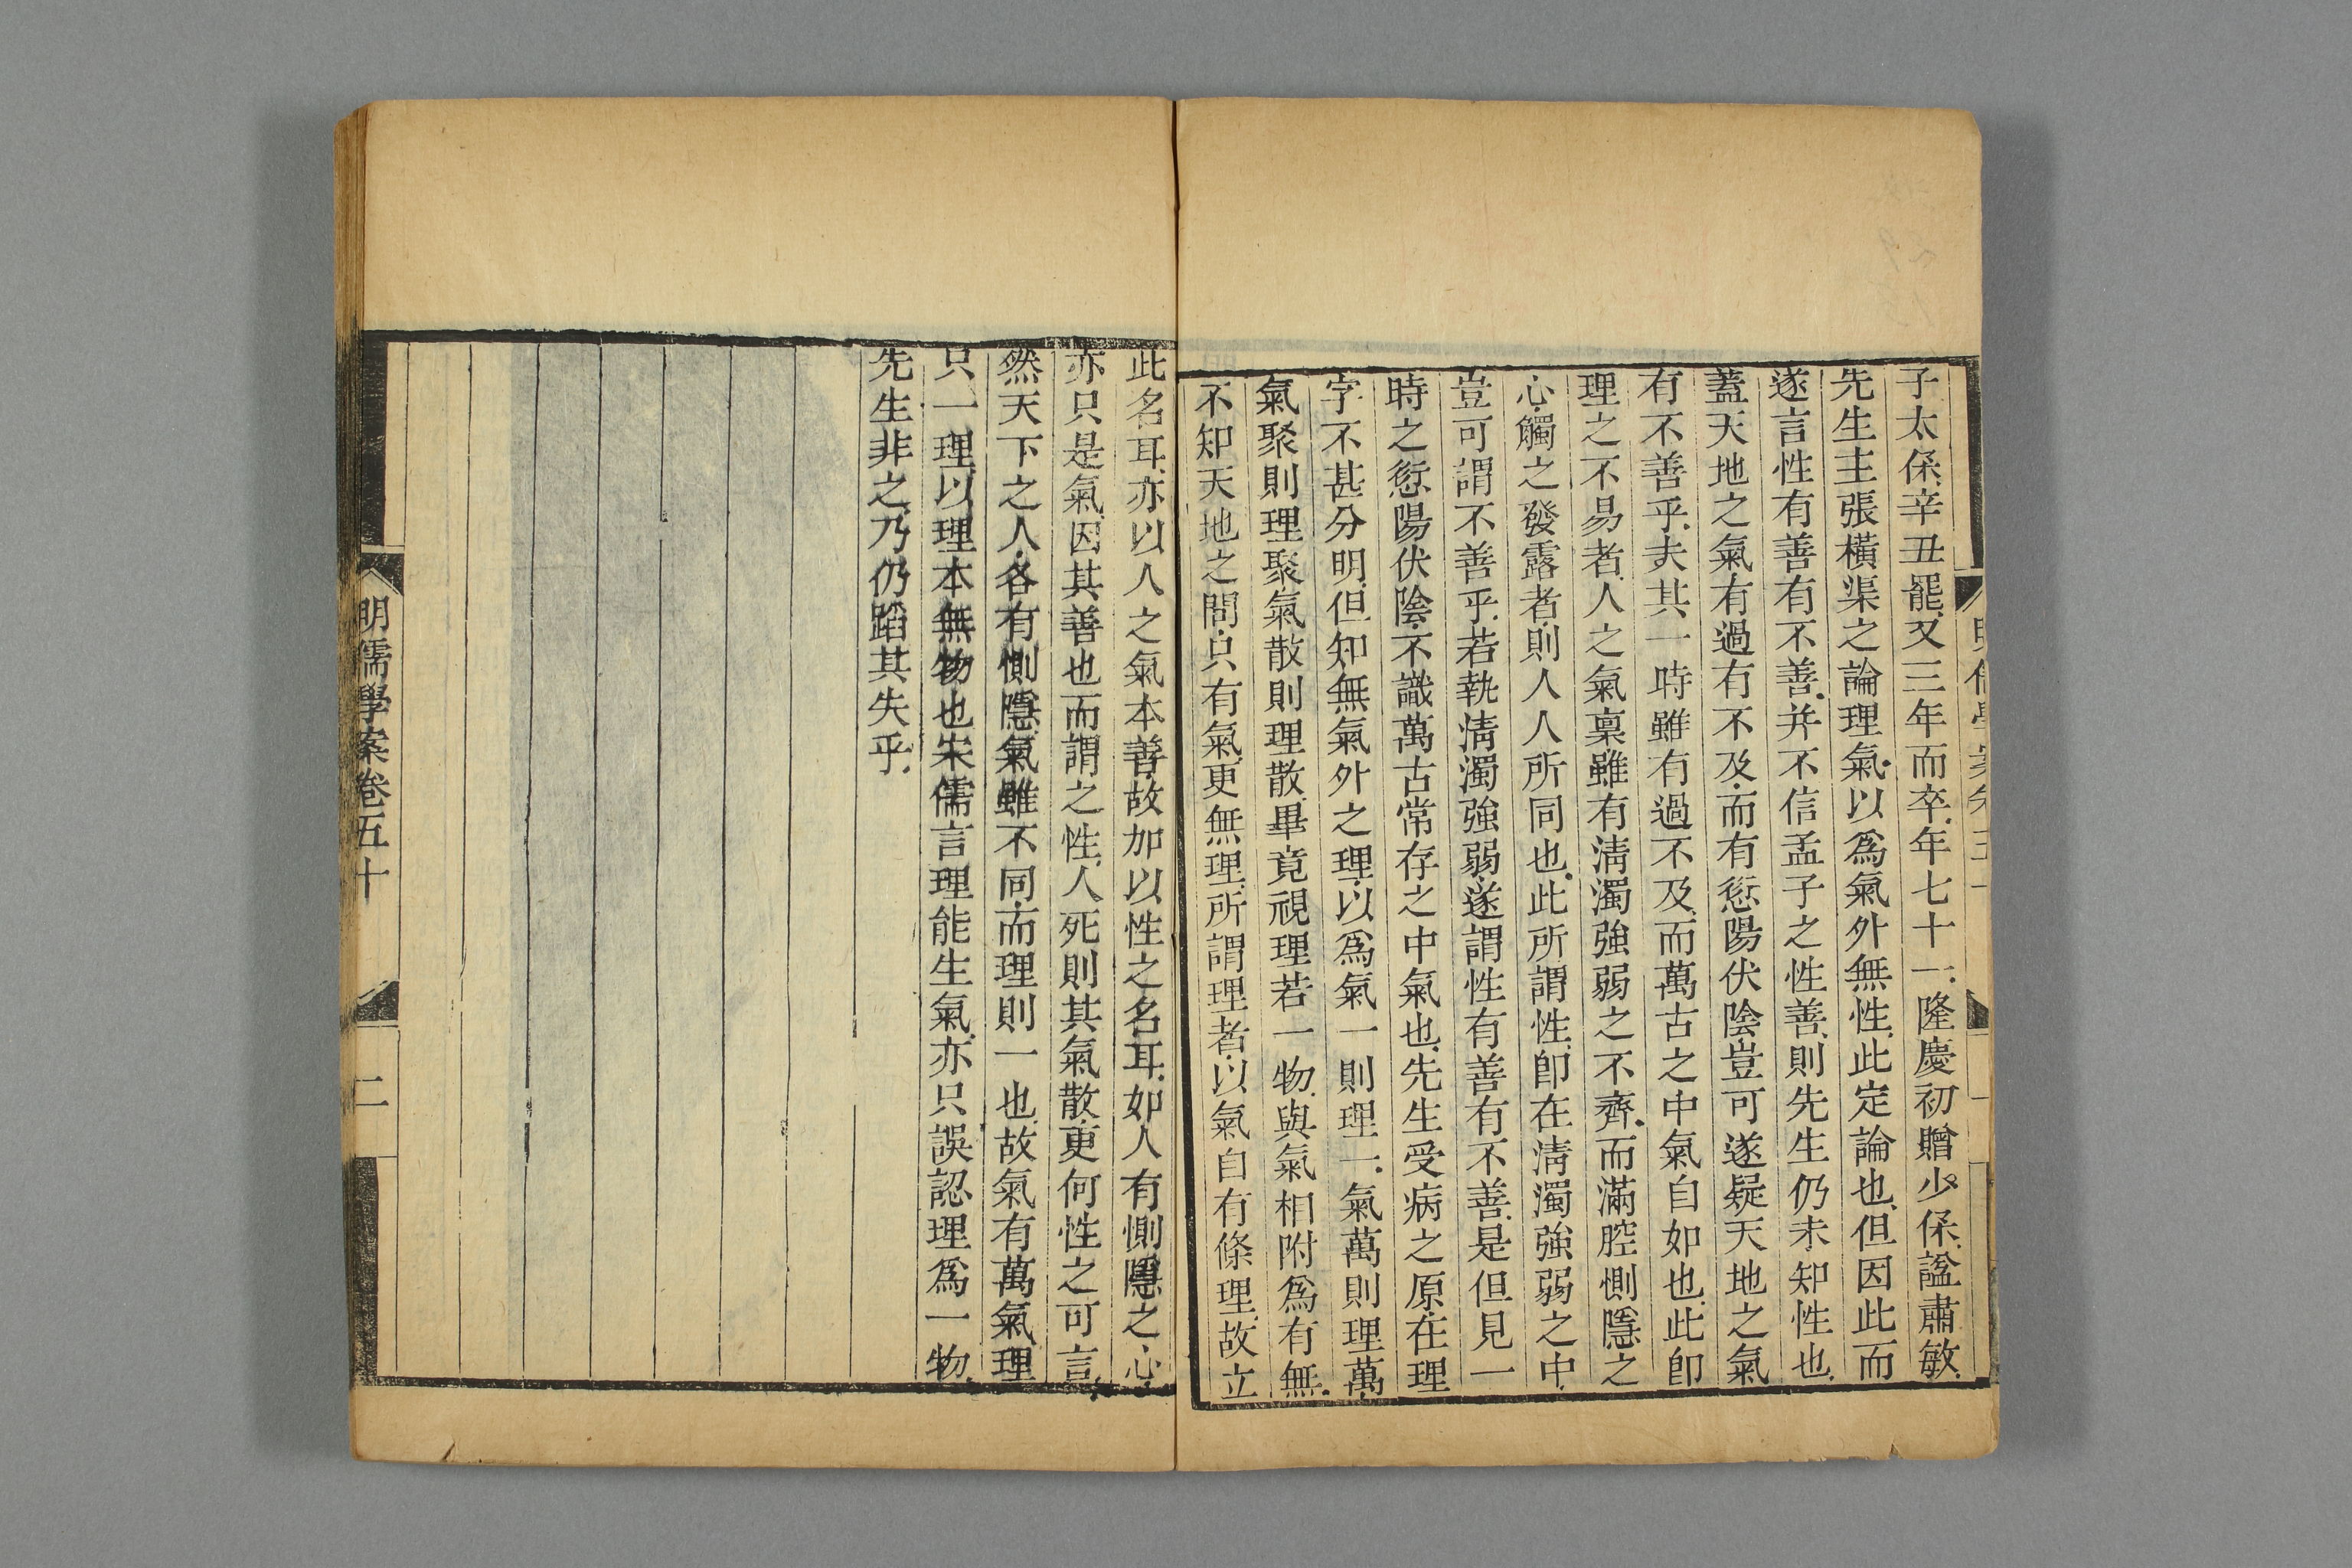 子太保辛丑罷又三年而卒年七十一隆慶初贈少保諡肅敏
先生主張橫渠之論理氣以爲氣外無性此定論也但因此而
遂言性有善有不善并不信孟子之性善則先生仍未知性也
蓋天地之氣有過有不及而有愆陽伏陰豈可遂疑天地之氣
有不善乎夫其一時雖有過不及而萬古之中氣自如也此卽
理之不易者人之氣稟雖有清濁強弱之不齊而滿腔惻隱之
心觸之發露者則人人所同也此所謂性卽在清濁強弱之中
豈可謂不善乎若執清濁強弱遂謂性有善有不善是但見一
時之愆陽伏陰不識萬古常存之中氣也先生受病之原在理
字不甚分明但知無氣外之理以爲氣一則理一氣萬則理萬
氣聚則理聚氣散則理散畢竟視理若一物與氣相附爲有無
不知天地之間只有氣更無理所謂理者以氣自有條理故立
此名耳亦以人之氣本善故加以性之名耳如人有惻隱之心
亦只是氣因其善也而謂之性人死則其氣散更何性之可言
然天下之人各有惻隱氣雖不同而理則一也故氣有萬氣理
只一理以理本無物也宋儒言理能生氣亦只誤認理爲一物
先生非之乃仍蹈其失乎
明儒學案卷五十
二